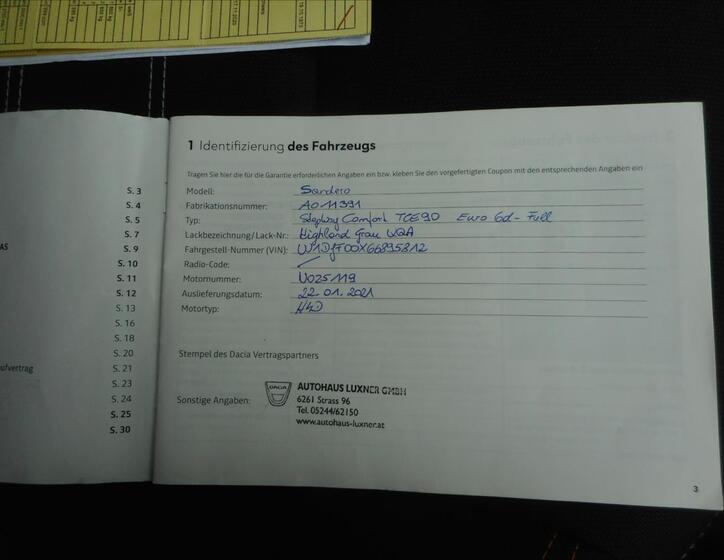 S. 3
S. 4
S. 5
S. 7
AS S. 9
S. 10
S. 11
S. 12
S. 13
S. 16
S. 18
S. 20
aufvertrag S. 21
S. 23
S. 24
S. 25
S. 30
1 Identifizierung des Fahrzeugs
Tragen Sie hier die für die Garantie erforderlichen Angaben ein bzw. kleben Sie den vorgefertigten Coupon mit den entsprechenden Angaben ein
Modell: Sandero
Fabrikationsnummer: A011391
Typ: Stepway Comfort TCE90 Euro 6d-Full
Lackbezeichnung/Lack-Nr.: Highland Grau KQA
Fahrgestell-Nummer (VIN):
Radio-Code:
Motornummer: U025119
Auslieferungsdatum: 22.01.2021
Motortyp: H4D
Stempel des Dacia Vertragspartners
Sonstige Angaben:
DACIA
AUTOHAUS LUXNER GMBH
6261 Strass 96
Tel. 05244/62150
www.autohaus-luxner.at
3